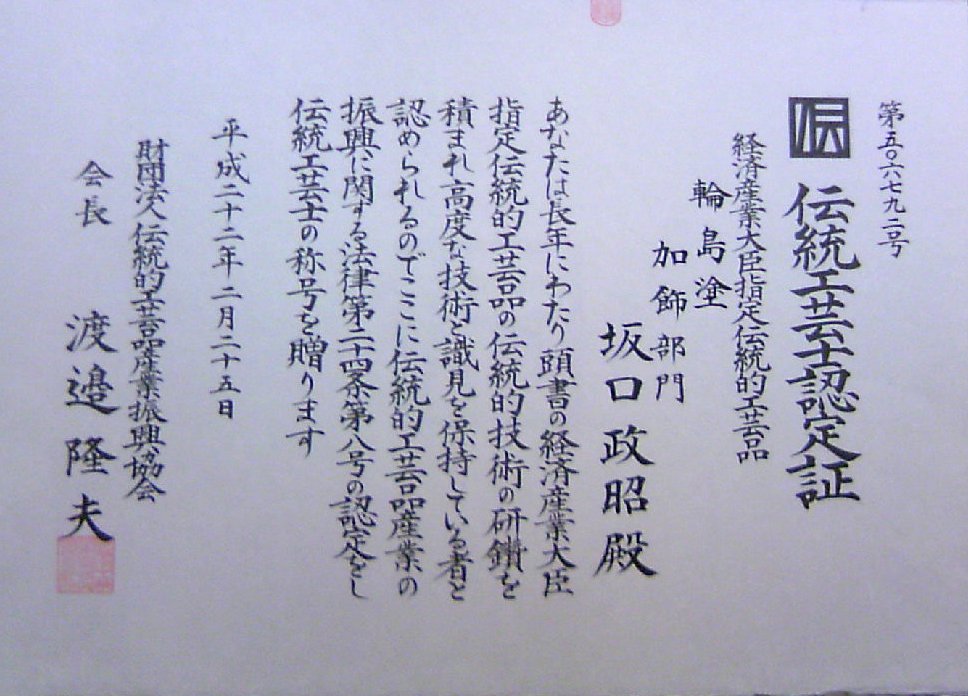 第五〇六七九二号
伝統工芸士認定証
経済産業大臣指定伝統的工芸品
輪島塗
加飾部門
坂口政昭殿
あなたは長年にわたり頭書の経済産業大臣
指定伝統的工芸品の伝統的技術の研鑽を
積まれ高度な技術と識見を保持している者と
認められるのでここに伝統的工芸品産業の
振興に関する法律第二十四条第八号の認定をし
伝統工芸士の称号を贈ります
平成二十二年二月二十五日
財団法人伝統的工芸品産業振興協会
会長 渡邉隆夫